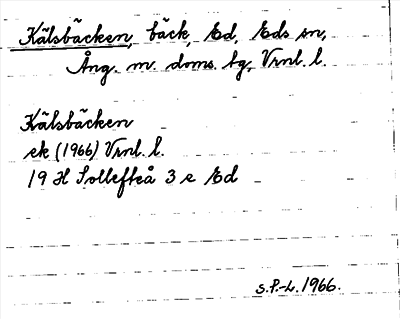 Kälsbäcken, bäck, Ed, Eds sn,
Ång. m. doms. tg, Vrnl. l.
Kälsbäcken
ek (1966) Vrnl. l.
19 H Sollefteå 3 e Ed
S.P.-L. 1966.